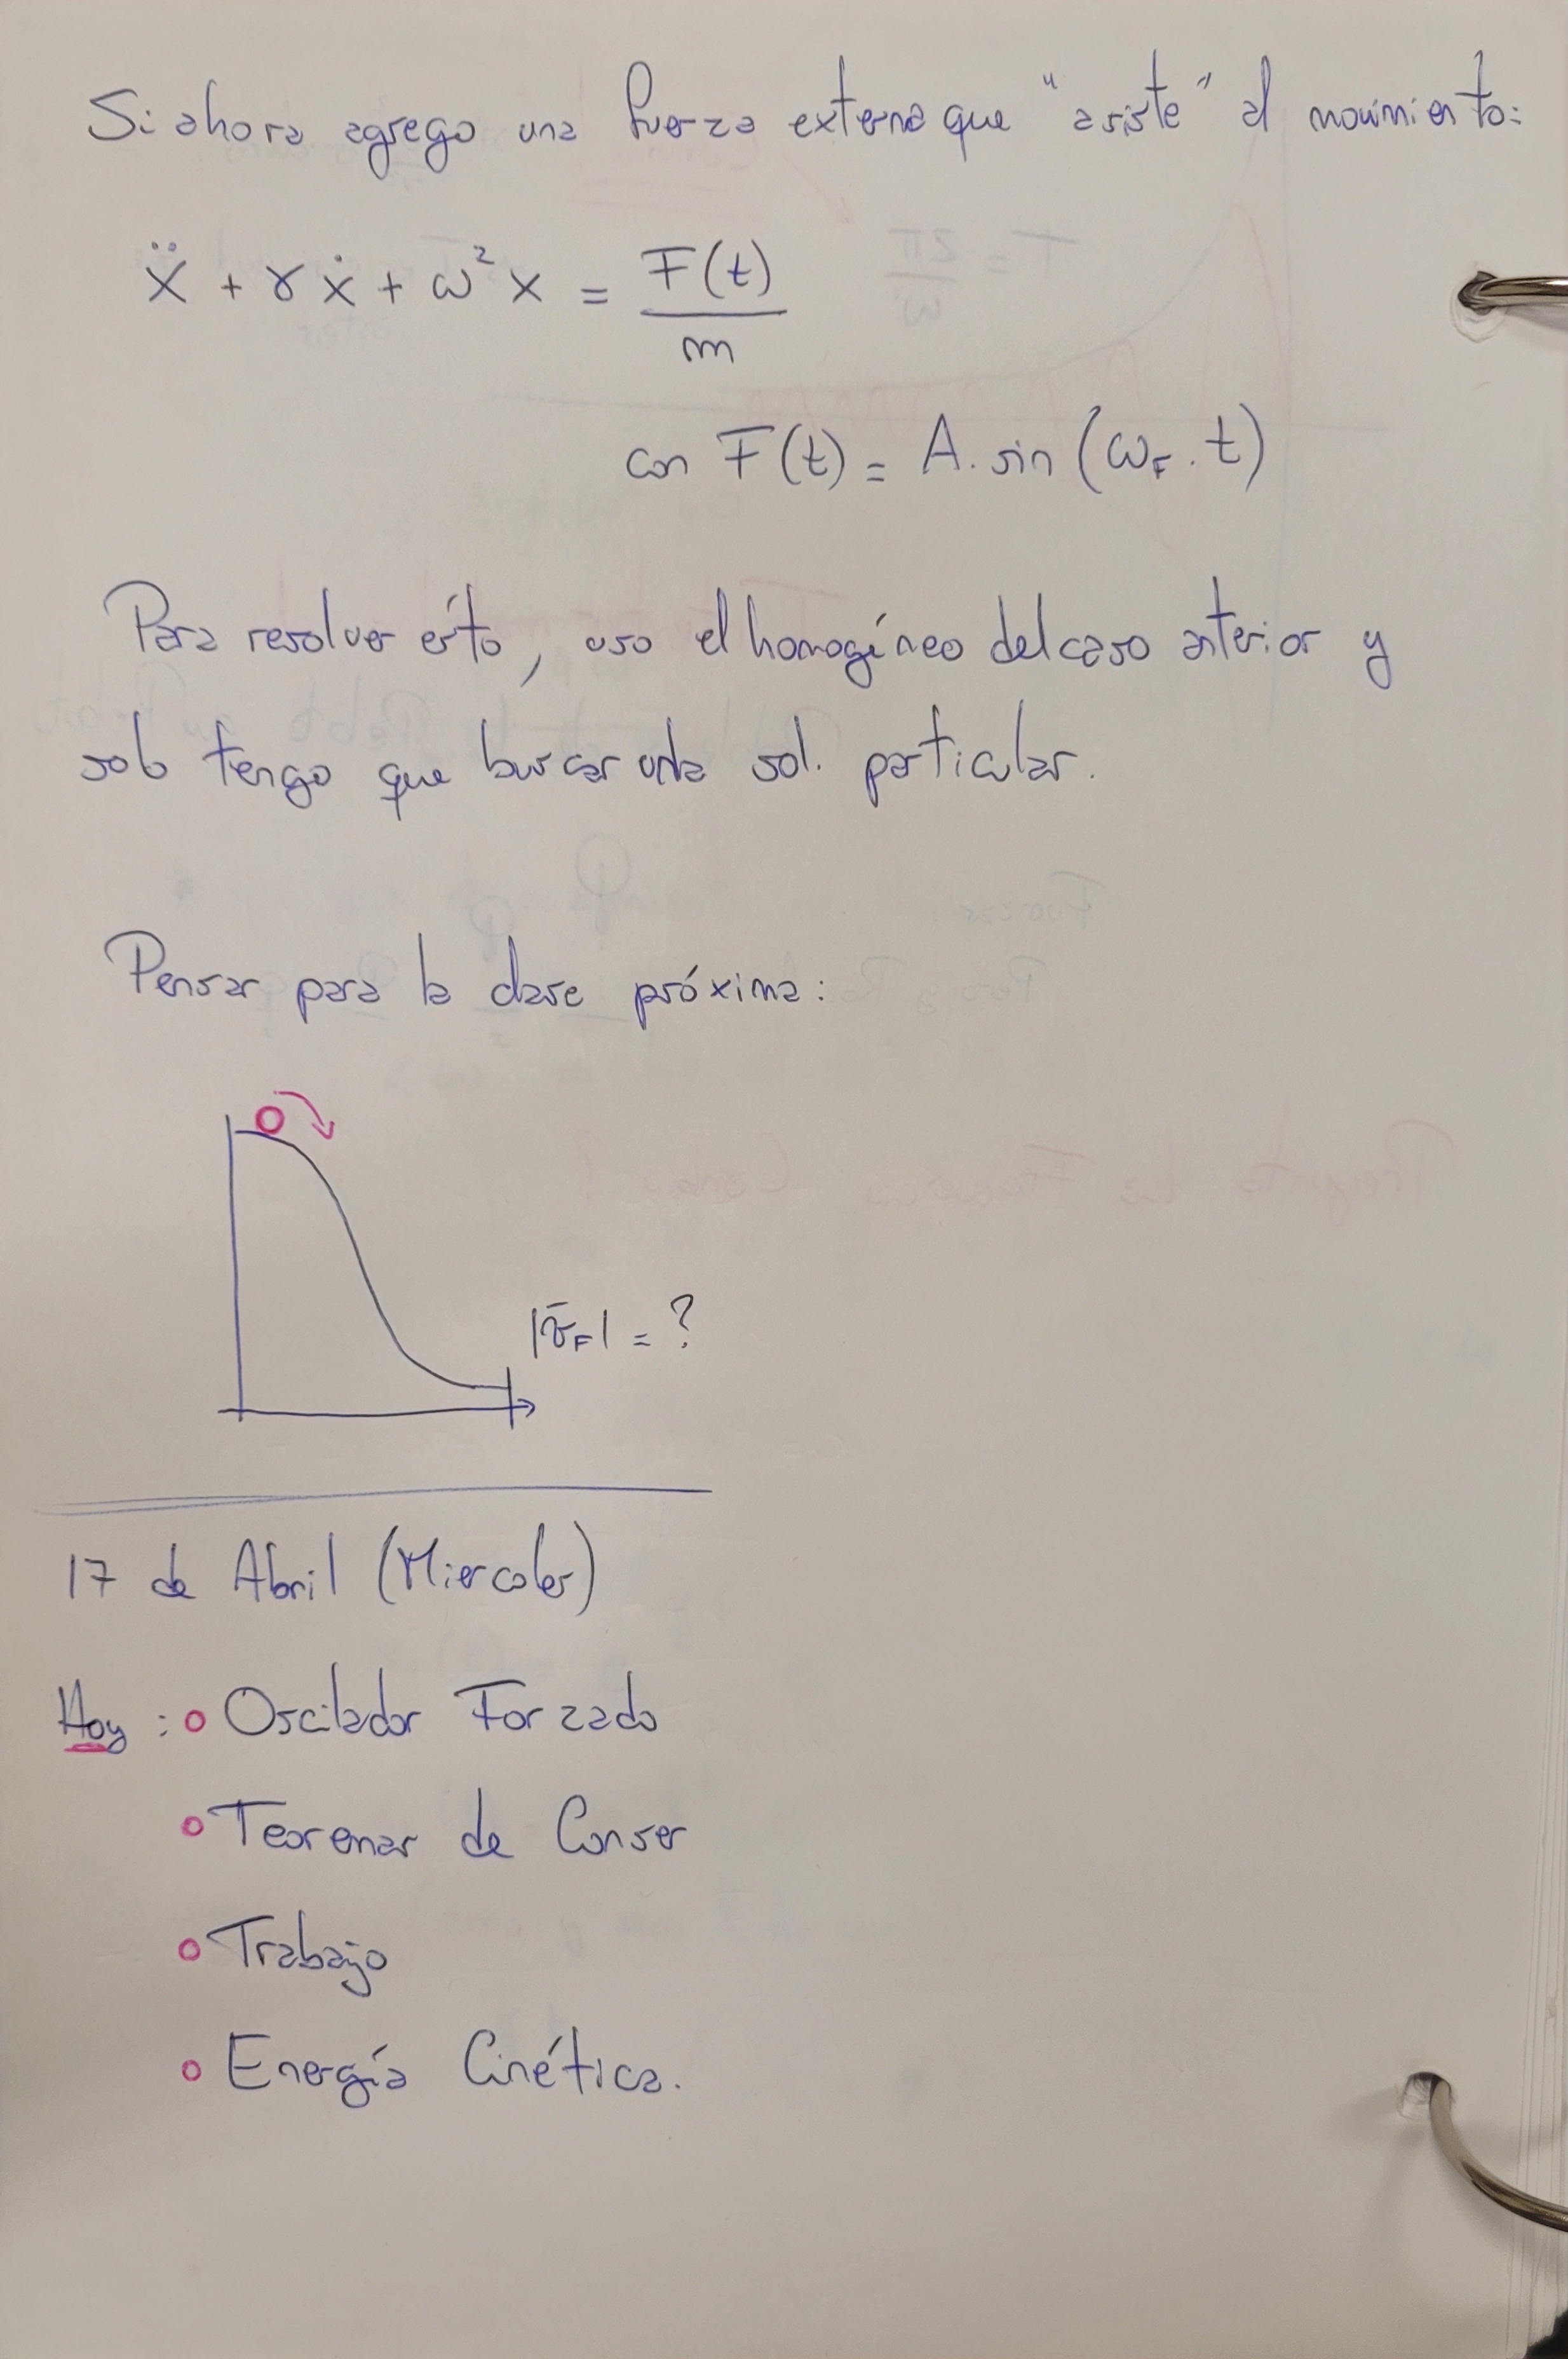 Si ahora agrego una fuerza externa que "asiste" al movimiento:
ẍ + γẋ + ω²x = F(t)/m
con F(t) = A. sin (ω_F . t)
Para resolver ésto, uso el homogéneo del caso anterior y
solo tengo que buscar una sol. particular.
Pensar para la clase próxima:
|v̄_F| = ?
17 de Abril (Miercoles)
Hoy : o Oscilador Forzado
o Teoremas de Conser
o Trabajo
o Energía Cinética.